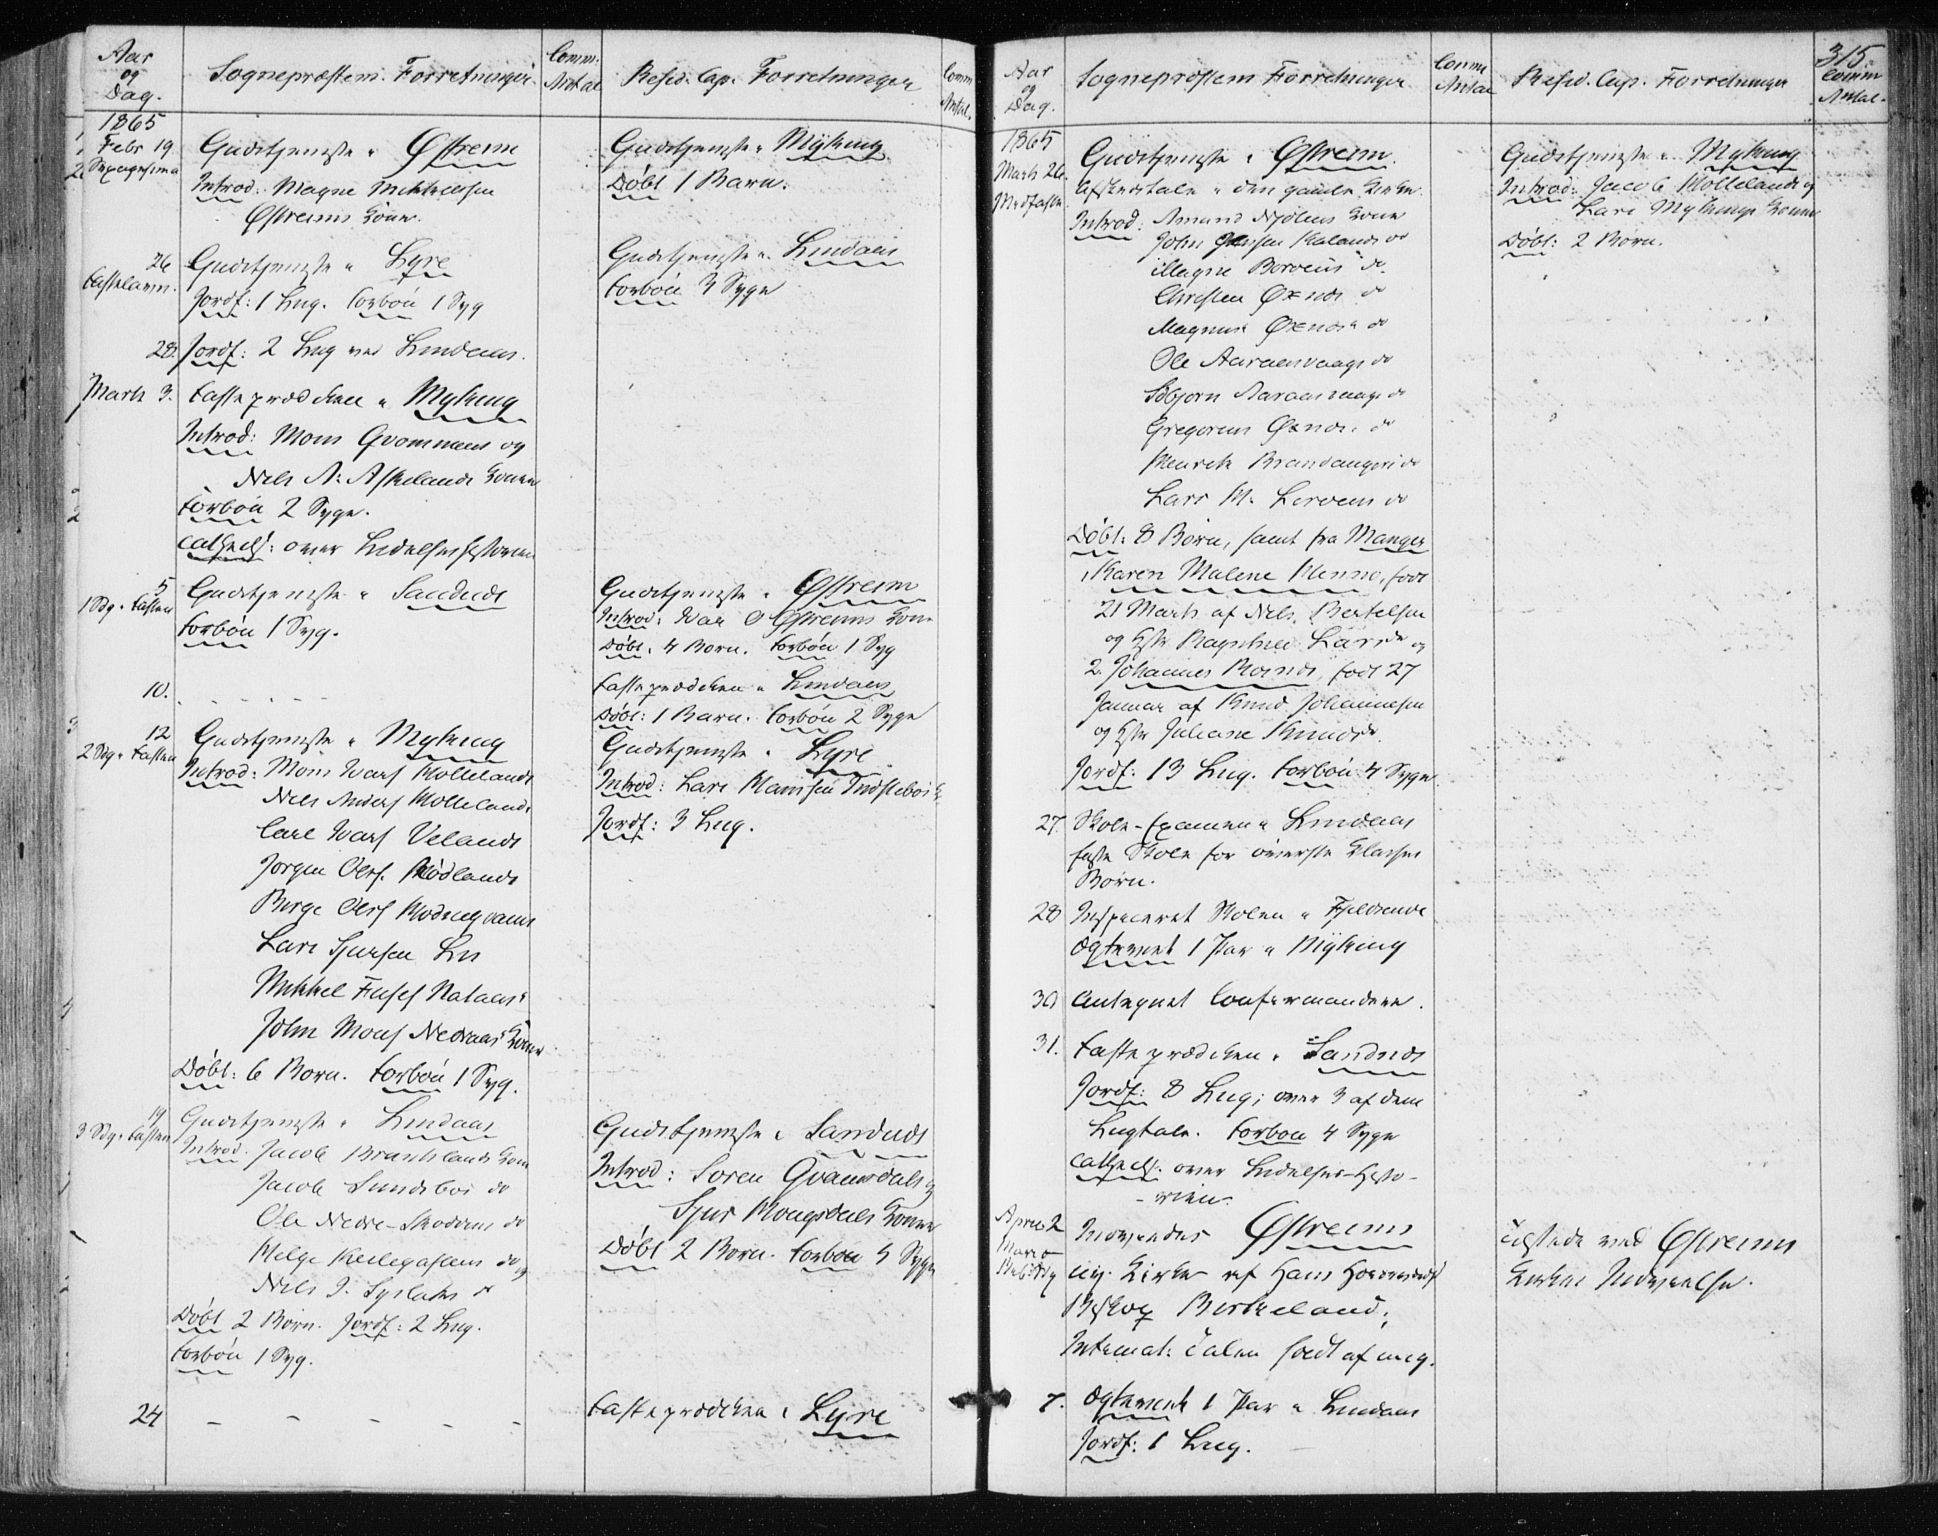 Aar og Dag.
Sognepræstens Forretninger
Comm. Antal
Resid. Cap. Forretninger
Comm. Antal.
1865
Febr 19
Sexagesima
Gudstjeneste i Østreim
Introd: Magne Mikkelsen
Østreims Kone.
Gudstjeneste i Myking
Døbt 1 Barn.
26
Fastelavn.
Gudstjeneste i Lygre
Jordf: 1 Lug. Forbön 1 Syg
Gudstjeneste i Lindaas
Forbön 3 Syge
28.
Jordf: 2 Lug ved Lindaas.
Marts 3.
Fasteprædiken i Myking
Introd: Mons Qvommens og
Nels A: Askelands Koner
Forbön 2 Syge.
Cathechs: over Lidelseshistorien
5
1 Sdg i Fasten
Gudstjeneste i Sandnæs
Forbön 1 Syg.
Gudstjeneste i Østreim
Introd: Ivar O Østreims Kone
Döbt: 4 Born. Forbön 1 Syg
10.
Fasteprædiken i Lindaas
Döbt: 1 Barn. Forbön 2 Syge
12
2 Sdg i Fasten
Gudstjeneste i Myking
Introd: Mons Ivars Kollelands
Nels Anders Kollelands
Carl Ivars Velands
Jorgen Olss. Rödlands
Birge Olss
Lars Sjursen Lis
Mikkel
John Mons Nedraas Koner
Döbt: 6 Born. Forbön 1 Syg.
Gudstjeneste i Lygre
Introd: Lars Hansen
Jordf: 3 Lug.
19
3 Sdg i Fasten
Gudstjeneste i Lindaas
Introd. Jacob Kone
Jacob Sundsboe do
Ole Nedre-Skodvins do
Helge do og
Nels J. do
Döbt 2 Born. Jordf: 2 Lug.
Forbön 1 Syg.
Gudstjeneste i Sandnæs
Introd: Soren Qvamsdals og
Sjur Hougsdals Koner
Döbt 2 Born. Forbön 5 Syge
24
Fasteprædiken i Lygre
315.
Aar og Dag.
Sognepræstens Forretninger
Comm Antal
Resid. Cap. Forretninger
Comm Antal.
1865
Marts 26.
Midfaste
Gudstjeneste i Østreim.
Afskedstale i den gamle Kirke
Introd: Amund Njölens Kone
John Jensen Kalands do
Magne do.
Christen Øxnæs do
Magnus Øxnæs do
Ole Aaraasvaags do
Sebjorn Aaraasvaags do
Gregorius Øxnæs do
Henrik Brandangers do
Lars M. Lervens do
Döbt: 8 Börn, samt fra Manger
1, Karen Malene, født
21 Marts af Nels Bertelsen
og Hstr Ragnhild Larsdr og
2. Johannes, født 27
Januar af Knud Johannesen
og Hstr Juliane Knudsdr.
Jordf: 13 Lug. Forbön 4 Syge
Gudstjeneste i Myking
Introd: Jacob Kollelands og
Lars Mykings Koner
Döbt: 2 Börn.
27.
Skole-Examen i Lindaas
faste Skole for øverste Klasses
Börn.
28
Inspiceret Skolen i Fjeldsende
Ægteviet 1 Par i Myking
30
Antegnet Confirmandere.
31.
Fasteprædiken i Sandnæs
Jordf: 8 Lug; over 3 af dem
Lugtale. Forbön 4 Syge
Cathechs. over Lidelses-Histo-
rien.
April 2
Indviedes Østreims
ny Kirke af Hans
Biskop Birkeland;
Intimat: Talen holdt af mig.
Tilstede ved Østreims
Kirkes Indvielse.
7.
Ægteviet 1 Par i Lindaas
Jordf: 1 Lug.